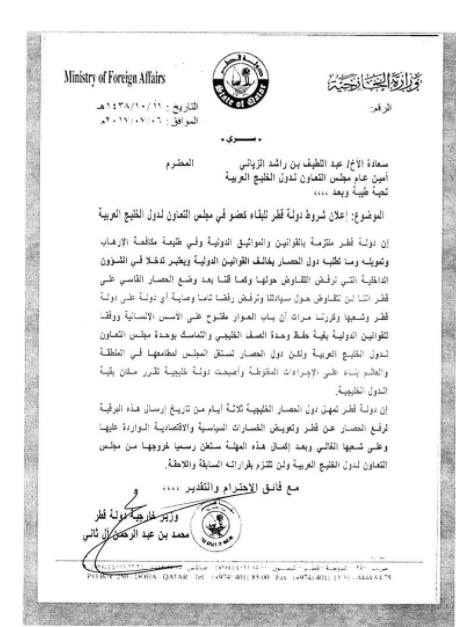 Ministry of Foreign Affairs
وزارة الخارجية
State of Qatar
دولة قطر
الرقم:
التاريخ : ١٤٣٨/١٠/١٢هـ
الموافق : ٢٠١٧/٠٧/٠٦م
- سري -
سعادة الأخ/ عبد اللطيف بن راشد الزياني المحترم
أمين عام مجلس التعاون لدول الخليج العربية
تحية طيبة وبعد ،،،،
الموضوع: إعلان شروط دولة قطر للبقاء كعضو في مجلس التعاون لدول الخليج العربية
إن دولة قطر ملتزمة بالقوانين والمواثيق الدولية وفي طليعة مكافحة الإرهاب
وتمويله وما تطلبه دول الحصار يخالف القوانين الدولية ويعتبر تدخلا في الشؤون
الداخلية التي نرفض التفاوض حولها وكما قلنا بعد وضع الحصار القاسي على
قطر اننا لن نتفاوض حول سيادتنا ونرفض رفضا تاما وصاية أي دولة على دولة
قطر وشعبها وكررنا مرات أن باب الحوار مفتوح على الأسس الإنسانية ووفقا
للقوانين الدولية بغية حفظ وحدة الصف الخليجي والتماسك بوحدة مجلس التعاون
لدول الخليج العربية ولكن دول الحصار تستغل المجلس لمطامعها في المنطقة
والعالم بناء على الإجراءات المغلوطة وأصبحت دولة خليجية تقرر مكان بقية
الدول الخليجية.
إن دولة قطر تمهل دول الحصار الخليجية ثلاثة أيام من تاريخ إرسال هذه البرقية
لرفع الحصار عن قطر وتعويض الخسارات السياسية والاقتصادية الواردة عليها
وعلى شعبها الغالي وبعد إكمال هذه المهلة ستعلن رسميا خروجها من مجلس
التعاون لدول الخليج العربية ولن تلتزم بقراراته السابقة واللاحقة.
مع فائق الاحترام والتقدير ،،،،
وزير خارجية دولة قطر
محمد بن عبد الرحمن آل ثاني
P.O BOX: 250 - DOHA - QATAR - Tel : (+974) 4011 85 00 - Fax : (+974) 4011 13 31 - 4444 84 75